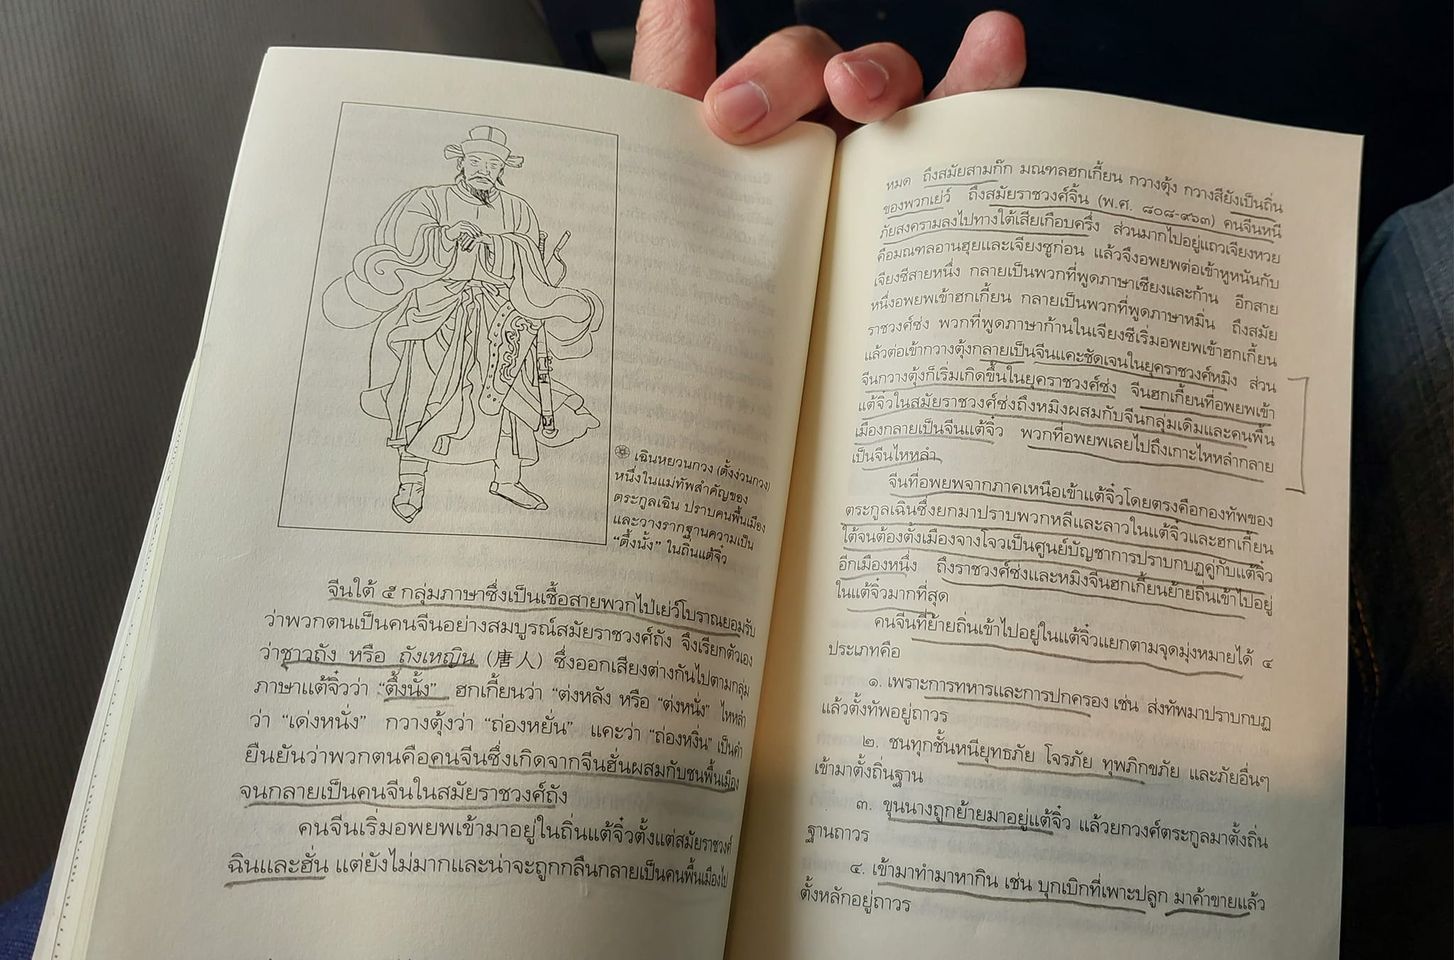 เฉินหยวนกวง (ตั้งง่วนกวง)
หนึ่งในแม่ทัพสำคัญของ
ตระกูลเฉิน ปราบคนพื้นเมือง
และวางรากฐานความเป็น
“ตึ้งนั้ง” ในถิ่นแต้จิ๋ว
จีนใต้ ๕ กลุ่มภาษาซึ่งเป็นเชื้อสายพวกไป่เย่ว์โบราณยอมรับ
ว่าพวกตนเป็นคนจีนอย่างสมบูรณ์สมัยราชวงศ์ถัง จึงเรียกตัวเอง
ว่าชาวถัง หรือ ถังเหญิน (唐人) ซึ่งออกเสียงต่างกันไปตามกลุ่ม
ภาษาแต้จิ๋วว่า “ตึ้งนั้ง” ฮกเกี้ยนว่า “ต่งหลัง หรือ “ต่งหนั่ง” ไหหลำ
ว่า “เด่งหนั่ง” กวางตุ้งว่า “ถ่องหยั่น” แคะว่า “ถ่องหงิ่น” เป็นคำ
ยืนยันว่าพวกตนคือคนจีนซึ่งเกิดจากจีนฮั่นผสมกับชนพื้นเมือง
จนกลายเป็นคนจีนในสมัยราชวงศ์ถัง
คนจีนเริ่มอพยพเข้ามาอยู่ในถิ่นแต้จิ๋วตั้งแต่สมัยราชวงศ์
ฉินและฮั่น แต่ยังไม่มากและน่าจะถูกกลืนกลายเป็นคนพื้นเมืองไป
หมด ถึงสมัยสามก๊ก มณฑลฮกเกี้ยน กวางตุ้ง กวางสียังเป็นถิ่น
ของพวกเย่ว์ ถึงสมัยราชวงศ์จิ้น (พ.ศ. ๘๐๘-๙๖๓) คนจีนหนี
ภัยสงครามลงไปทางใต้เสียเกือบครึ่ง ส่วนมากไปอยู่แถวเจียงหวย
คือมณฑลอานฮุยและเจียงซูก่อน แล้วจึงอพยพต่อเข้าหูหนันกับ
เจียงซีสายหนึ่ง กลายเป็นพวกที่พูดภาษาเซียงและก้าน อีกสาย
หนึ่งอพยพเข้าฮกเกี้ยน กลายเป็นพวกที่พูดภาษาหมิ่น ถึงสมัย
ราชวงศ์ซ่ง พวกที่พูดภาษาก้านในเจียงซีเริ่มอพยพเข้าฮกเกี้ยน
แล้วต่อเข้ากวางตุ้งกลายเป็นจีนแคะชัดเจนในยุคราชวงศ์หมิง ส่วน
จีนกวางตุ้งก็เริ่มเกิดขึ้นในยุคราชวงศ์ซ่ง จีนฮกเกี้ยนที่อพยพเข้า
แต้จิ๋วในสมัยราชวงศ์ซ่งถึงหมิงผสมกับจีนกลุ่มเดิมและคนพื้น
เมืองกลายเป็นจีนแต้จิ๋ว พวกที่อพยพเลยไปถึงเกาะไหหลำกลาย
เป็นจีนไหหลำ
จีนที่อพยพจากภาคเหนือเข้าแต้จิ๋วโดยตรงคือกองทัพของ
ตระกูลเฉินซึ่งยกมาปราบพวกหลีและลาวในแต้จิ๋วและฮกเกี้ยน
ใต้จนต้องตั้งเมืองจางโจวเป็นศูนย์บัญชาการปราบกบฏคู่กับแต้จิ๋ว
อีกเมืองหนึ่ง ถึงราชวงศ์ซ่งและหมิงจีนฮกเกี้ยนย้ายถิ่นเข้าไปอยู่
ในแต้จิ๋วมากที่สุด
คนจีนที่ย้ายถิ่นเข้าไปอยู่ในแต้จิ๋วแยกตามจุดมุ่งหมายได้ ๔
ประเภทคือ
๑. เพราะการทหารและการปกครอง เช่น ส่งทัพมาปราบกบฏ
แล้วตั้งทัพอยู่ถาวร
๒. ชนทุกชั้นหนียุทธภัย โจรภัย ทุพภิกขภัย และภัยอื่นๆ
เข้ามาตั้งถิ่นฐาน
๓. ขุนนางถูกย้ายมาอยู่แต้จิ๋ว แล้วยกวงศ์ตระกูลมาตั้งถิ่น
ฐานถาวร
๔. เข้ามาทำมาหากิน เช่น บุกเบิกที่เพาะปลูก มาค้าขายแล้ว
ตั้งหลักอยู่ถาวร